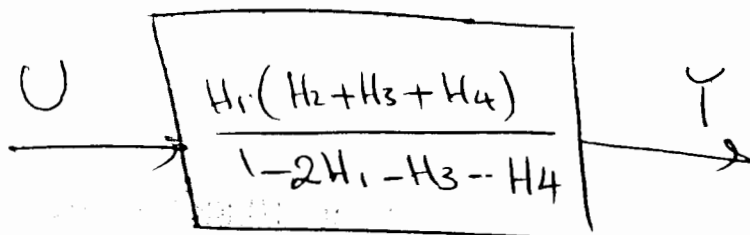 U
H1.(H2+H3+H4)
1-2H1-H3--H4
Y